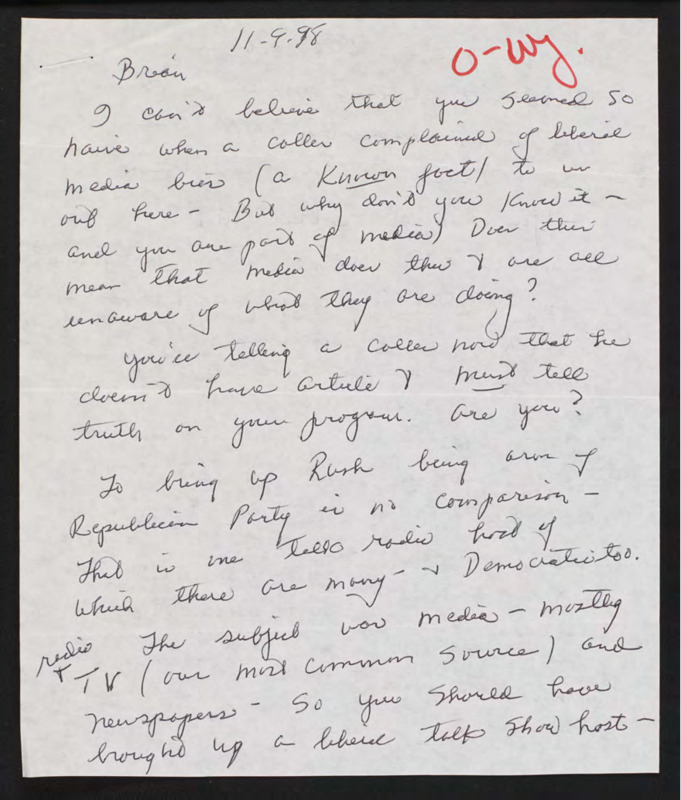 11-9-98
O-Wy.
Brian
I can't believe that you seemed so
naive when a caller complained of liberal
media bias (a Known fact) to us
out here - But why don't you Know it -
and you are part of media) Does this
mean that media does this & are all
unaware of what they are doing?
you're telling a caller now that he
doesn't have article & must tell
truth on your program. are you?
To bring up Rush being arm of
Republican Party is no comparison -
That is one talk radio host of
which there are many - & Democratic too.
The subject was media - mostly
radio
& TV (our most common source) and
newspapers - So you should have
brought up a liberal talk show host -